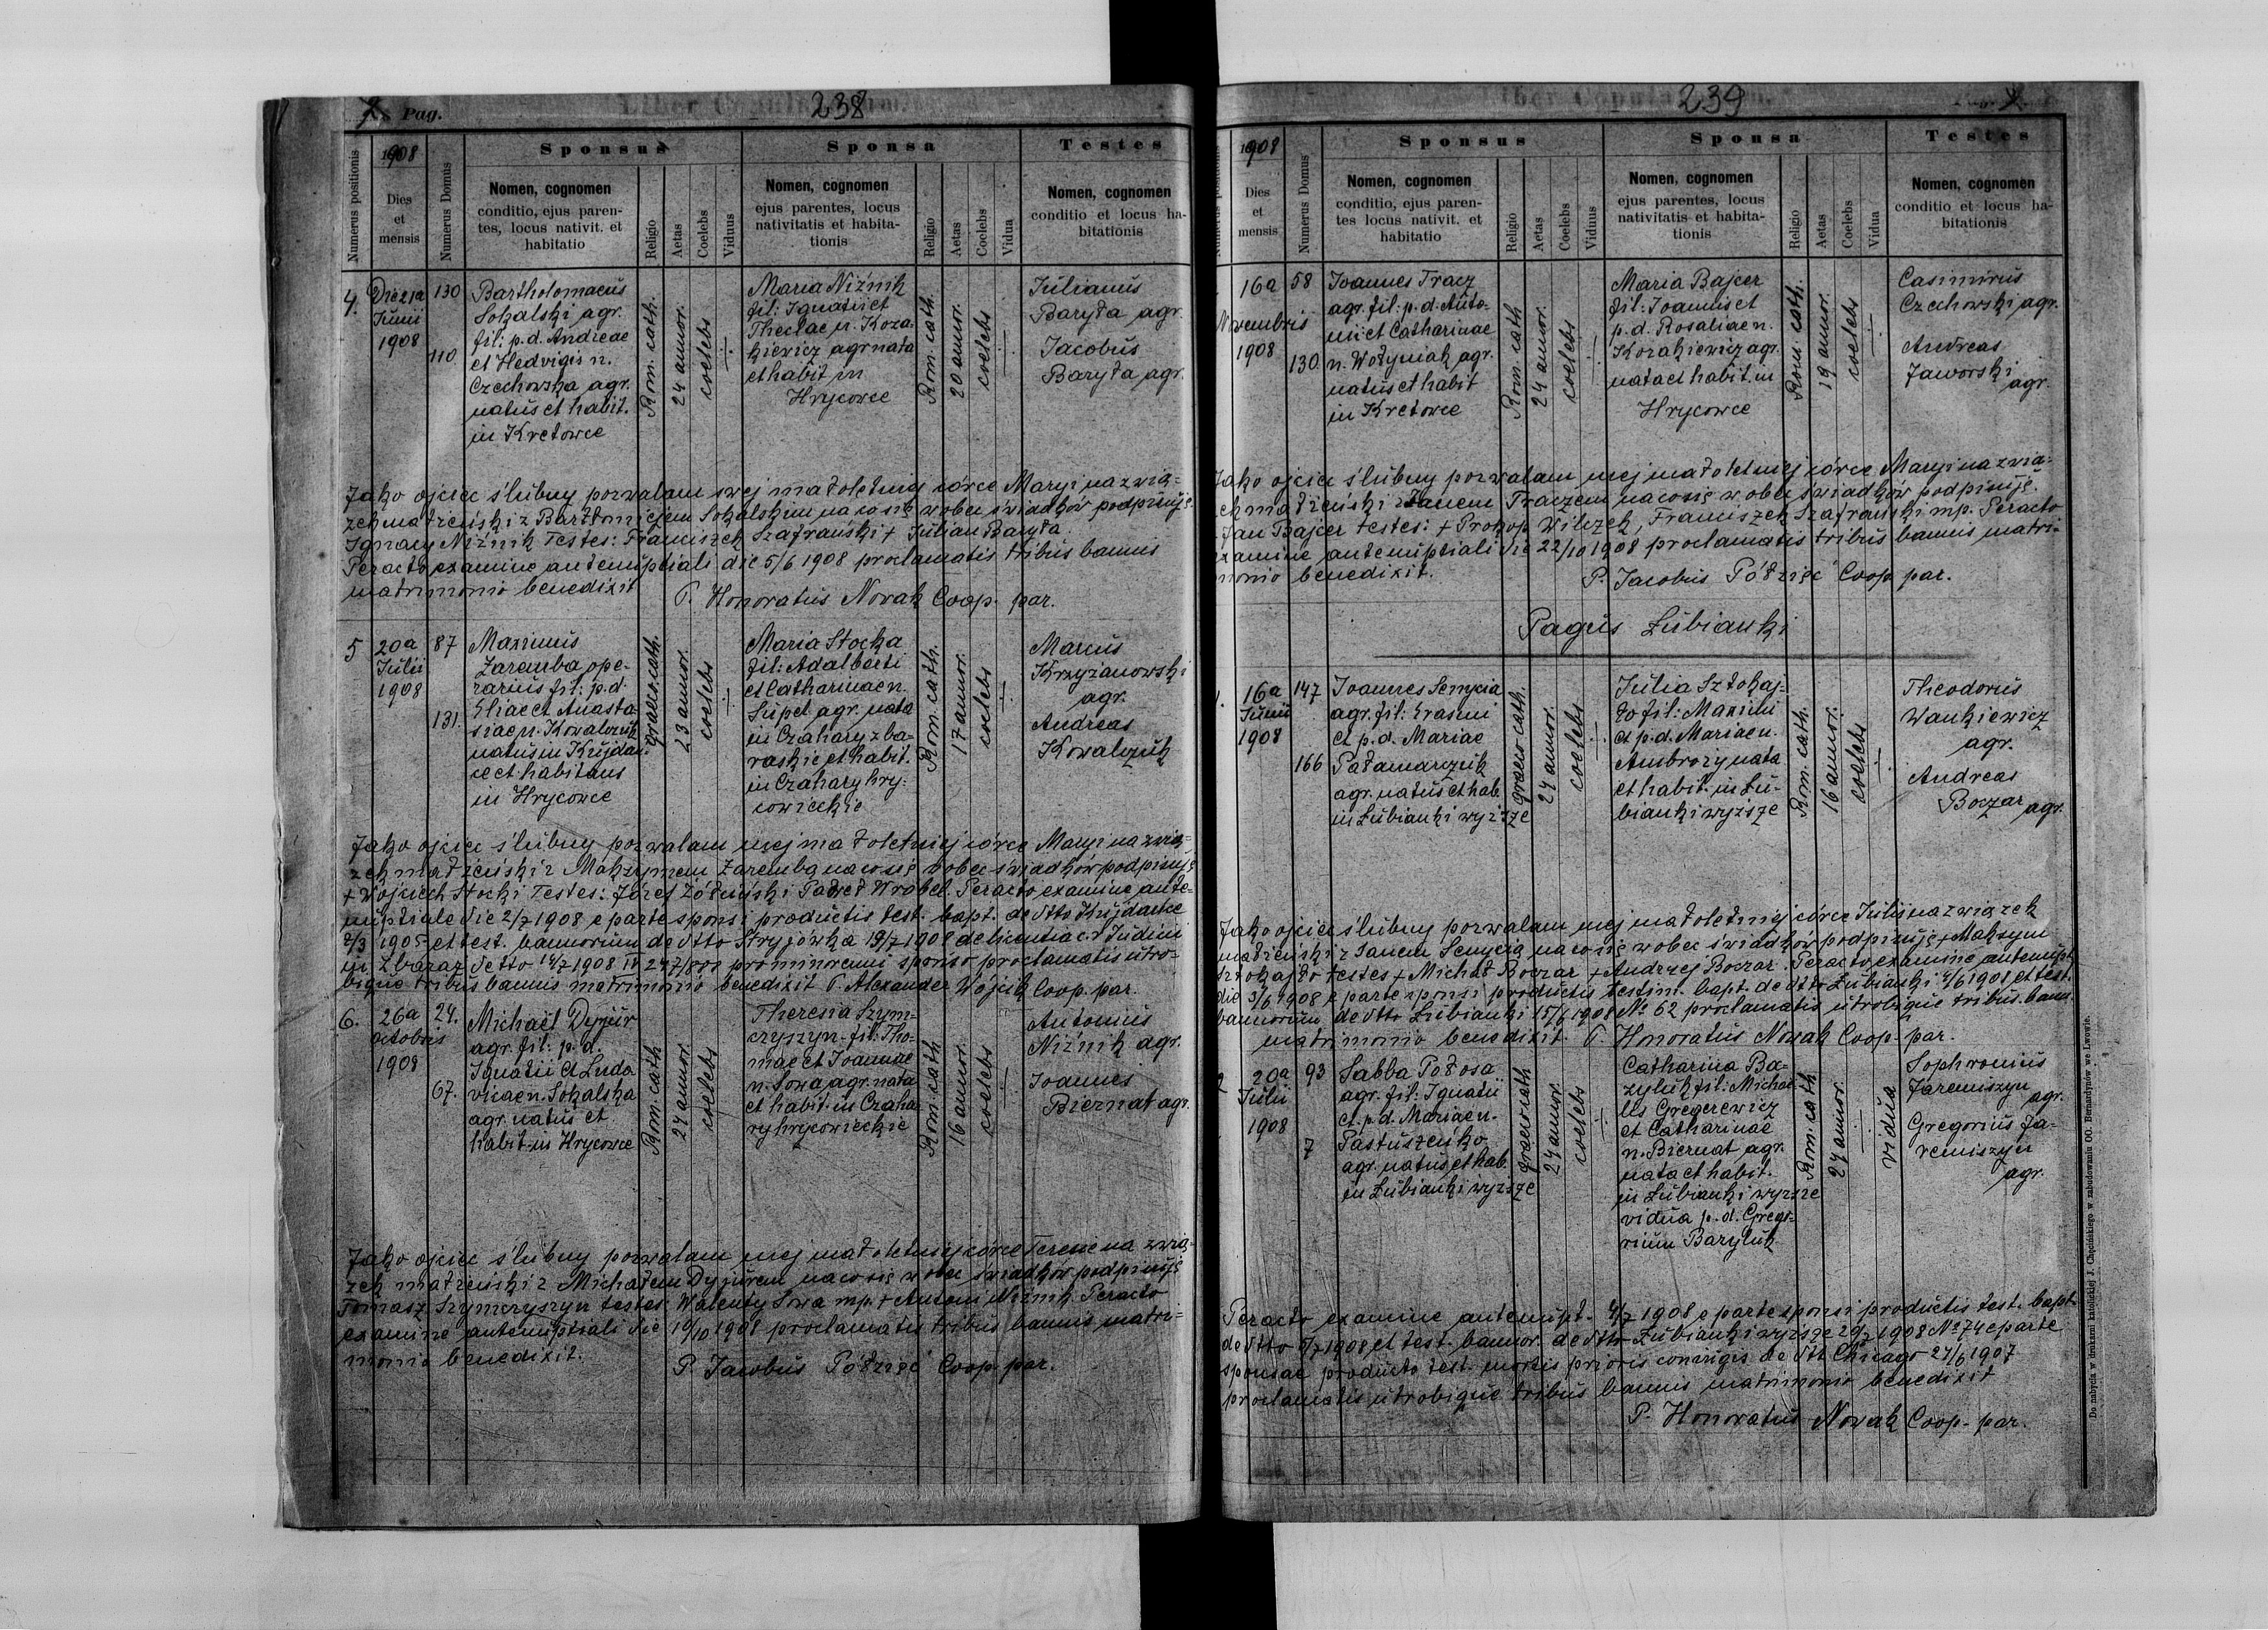 Pag.
238
1908
Sponsus
Sponsa
Testes
Numerus positionis
Dies et mensis
Numerus Domus
Nomen, cognomen
conditio, ejus paren-
tes, locus nativit. et
habitatio
Religio
Aetas
Coelebs
Viduus
Nomen, cognomen
ejus parentes, locus
nativitatis et habita-
tionis
Religio
Aetas
Coelebs
Vidua
Nomen, cognomen
conditio et locus ha-
bitationis
4.
Die 21a
Junii
1908
130
110.
Bartholomaeus
Sokalski agr.
fil: p.d. Andreae
et Hedvigis n.
Czechowska agr.
natus et habit.
in Kretowce
Rom. cath.
24 annor.
coelebs
Maria Niżnik
fil: Ignatii et
Theclae n. Koza-
kiewicz agr nata
et habit in
Hrycowce
Rom. cath.
20 annor.
coelebs
Julianus
Baryła agr.
Jacobus
Baryła agr.
Jako ojciec ślubny pozwalam swej małoletniej córce Maryi na zwią-
zek małżeński z Bartłomiejem Sokalskim na co się w obec świadków podpisuję.
Ignacy Niżnik Testes: Franciszek Szafrański + Julian Baryła.
Peracto examine antenuptiali die 5/6 1908 proclamatis tribus bannis
matrimonio benedixit
P. Honoratus Nowak Coop. par.
5
20a
Julii
1908
87
131.
Maximus
Zaremba ope-
rarius fil: p.d.
Eliae et Anasta-
siae n. Kowalczuk
natus in Kujdan-
ce et habitans
in Hrycowce
graeco cath.
23 annor.
coelebs
Maria Stocka
fil: Adalberti
et Catharinae n.
Supel agr. nata
in Czahary zba-
raskie et habit.
in Czahary hry-
cowieckie
Rom. cath.
17 annor.
coelebs
Marcus
Krzyżanowski
agr.
Andreas
Kowalczuk
Jako ojciec ślubny pozwalam mej małoletniej córce Maryi na zwią-
zek małżeński z Maksymem Zarembą na co się w obec świadków podpisuję
+ Wojciech Stocki Testes: Józef Żółtuński Paweł Wróbel. Peracto examine ante-
nuptiale die 2/7 1908 e parte sponsi productis test. bapt. de dtto Kujdańce
2/3 1905 et test. bannorum de dtto Stryjówka 19/7 1908 de licentia c.r. Judicii
in Zbaraż de dtto 14/7 1908 IV 247/800 pro minorenni sponso proclamatis utro-
bique tribus bannis matrimonio benedixit P. Alexander Wójcik Coop. par.
6.
26a
octobris
1908
24.
67.
Michaël Dyjur
agr. fil: p.d.
Ignatii et Ludo-
vicae n. Sokalska
agr. natus et
habit in Hrycowce
Rom. cath
24 annor.
coelebs
Theresia Szym-
czyszyn fil: Tho-
mae et Joannae
n. Sowa agr. nata
et habit. in Czaha-
ry hrycowieckie
Rom. cath.
16 annor.
coelebs
Antonius
Niżnik agr.
Joannes
Biernat agr.
Jako ojciec ślubny pozwalam mej małoletniej córce Teresie na zwią-
zek małżeński z Michałem Dyjurem na co się w obec świadków podpisuję
Tomasz Szymczyszyn testes Walenty Sowa mp. + Antoni Niżnik. Peracto
examine antenuptiali die 10/10 1908 proclamatis tribus bannis matri-
monio benedixit.
P. Jacobus Półzięć Coop. par.
239
1908
Sponsus
Sponsa
Testes
Dies et mensis
Numerus Domus
Nomen, cognomen
conditio, ejus paren-
tes locus nativit. et
habitatio
Religio
Aetas
Coelebs
Viduus
Nomen, cognomen
ejus parentes, locus
nativitatis et habita-
tionis
Religio
Aetas
Coelebs
Vidua
Nomen, cognomen
conditio et locus ha-
bitationis
16a
Novembris
1908
58
130
Joannes Tracz
agr. fil: p.d. Anto-
nii et Catharinae
n. Wołyniak agr.
natus et habit
in Kretowce
Rom. cath
24 annor.
coelebs
Maria Bajcer
fil: Joannis et
p.d. Rosaliae n.
Kozakiewicz agr.
nata et habit. in
Hrycowce
Rom. cath.
19 annor.
coelebs
Casimirus
Czechowski agr.
Andreas
Jaworski
agr.
Jako ojciec ślubny pozwalam mej małoletniej córce Maryi na zwią-
zek małżeński z Janem Traczem na co się w obec świadków podpisuję.
Jan Bajcer testes: + Prokop Wilczek, Franciszek Szafrański mp. Peracto
examine antenuptiali die 22/10 1908 proclamatis tribus bannis matri-
monio benedixit.
P. Jacobus Półzięć Coop par.
Pagus Łubianki
16a
Junii
1908
147
166
Joannes Senycia
agr. fil: Erasmi
et p.d. Mariae
Pałamarczuk
agr. natus et hab.
in Łubianki wyższe
graeco cath.
24 annor.
coelebs
Julia Sztokaj-
ło fil: Maximi
et p.d. Mariae n.
Ambroży nata
et habit. in Łu-
bianki wyższe
Rom. cath.
16 annor.
coelebs
Theodorus
Wankiewicz
agr.
Andreas
Boczar agr.
Jako ojciec ślubny pozwalam mej małoletniej córce Julii na związek
małżeński z Janem Senycią na co się w obec świadków podpisuję + Maksym
Sztokajło testes + Michał Boczar + Andrzej Boczar. Peracto examine antenupt.
die 3/6 1908 e parte sponsi productis testim. bapt. de dtto Łubianki 4/6 1908 et test.
bannorum de dtto Łubianki 15/6 1908 No 62 proclamatis utrobique tribus bann.
matrimonio benedixit. P. Honoratus Nowak Coop. par.
2
20a
Julii
1908
93
7
Sabba Połosa
agr. fil: Ignatii
et p.d. Mariae n.
Pastuszenko
agr. natus et hab.
in Łubianki wyższe
graeco cath
24 annor
coelebs
Catharina Ba-
zyluk fil: Michae-
lis Gregerewicz
et Catharinae
n. Biernat agr.
nata et habit.
in Łubianki wyższe
vidua p.d. Grego-
rium Baryluk
Rom. cath
24 annor.
vidua
Sophronius
Jaremiszyn
agr.
Gregorius Ja-
remiszyn
agr.
Peracto examine antenupt. 4/7 1908 e parte sponsi productis test. bapt.
de dtto 5/7 1908 et test. bannor. de dtto Łubianki wyższe 20/7 1908 No 74 e parte
sponsae producto test. mortis prioris coniugis de dtt Chicago 27/6 1907
proclamatis utrobique tribus bannis matrimonio benedixit
P. Honoratus Nowak Coop. par.
Do nabycia w drukarni katolickiej J. Chęcińskiego w zabudowaniu OO. Bernardynów we Lwowie.